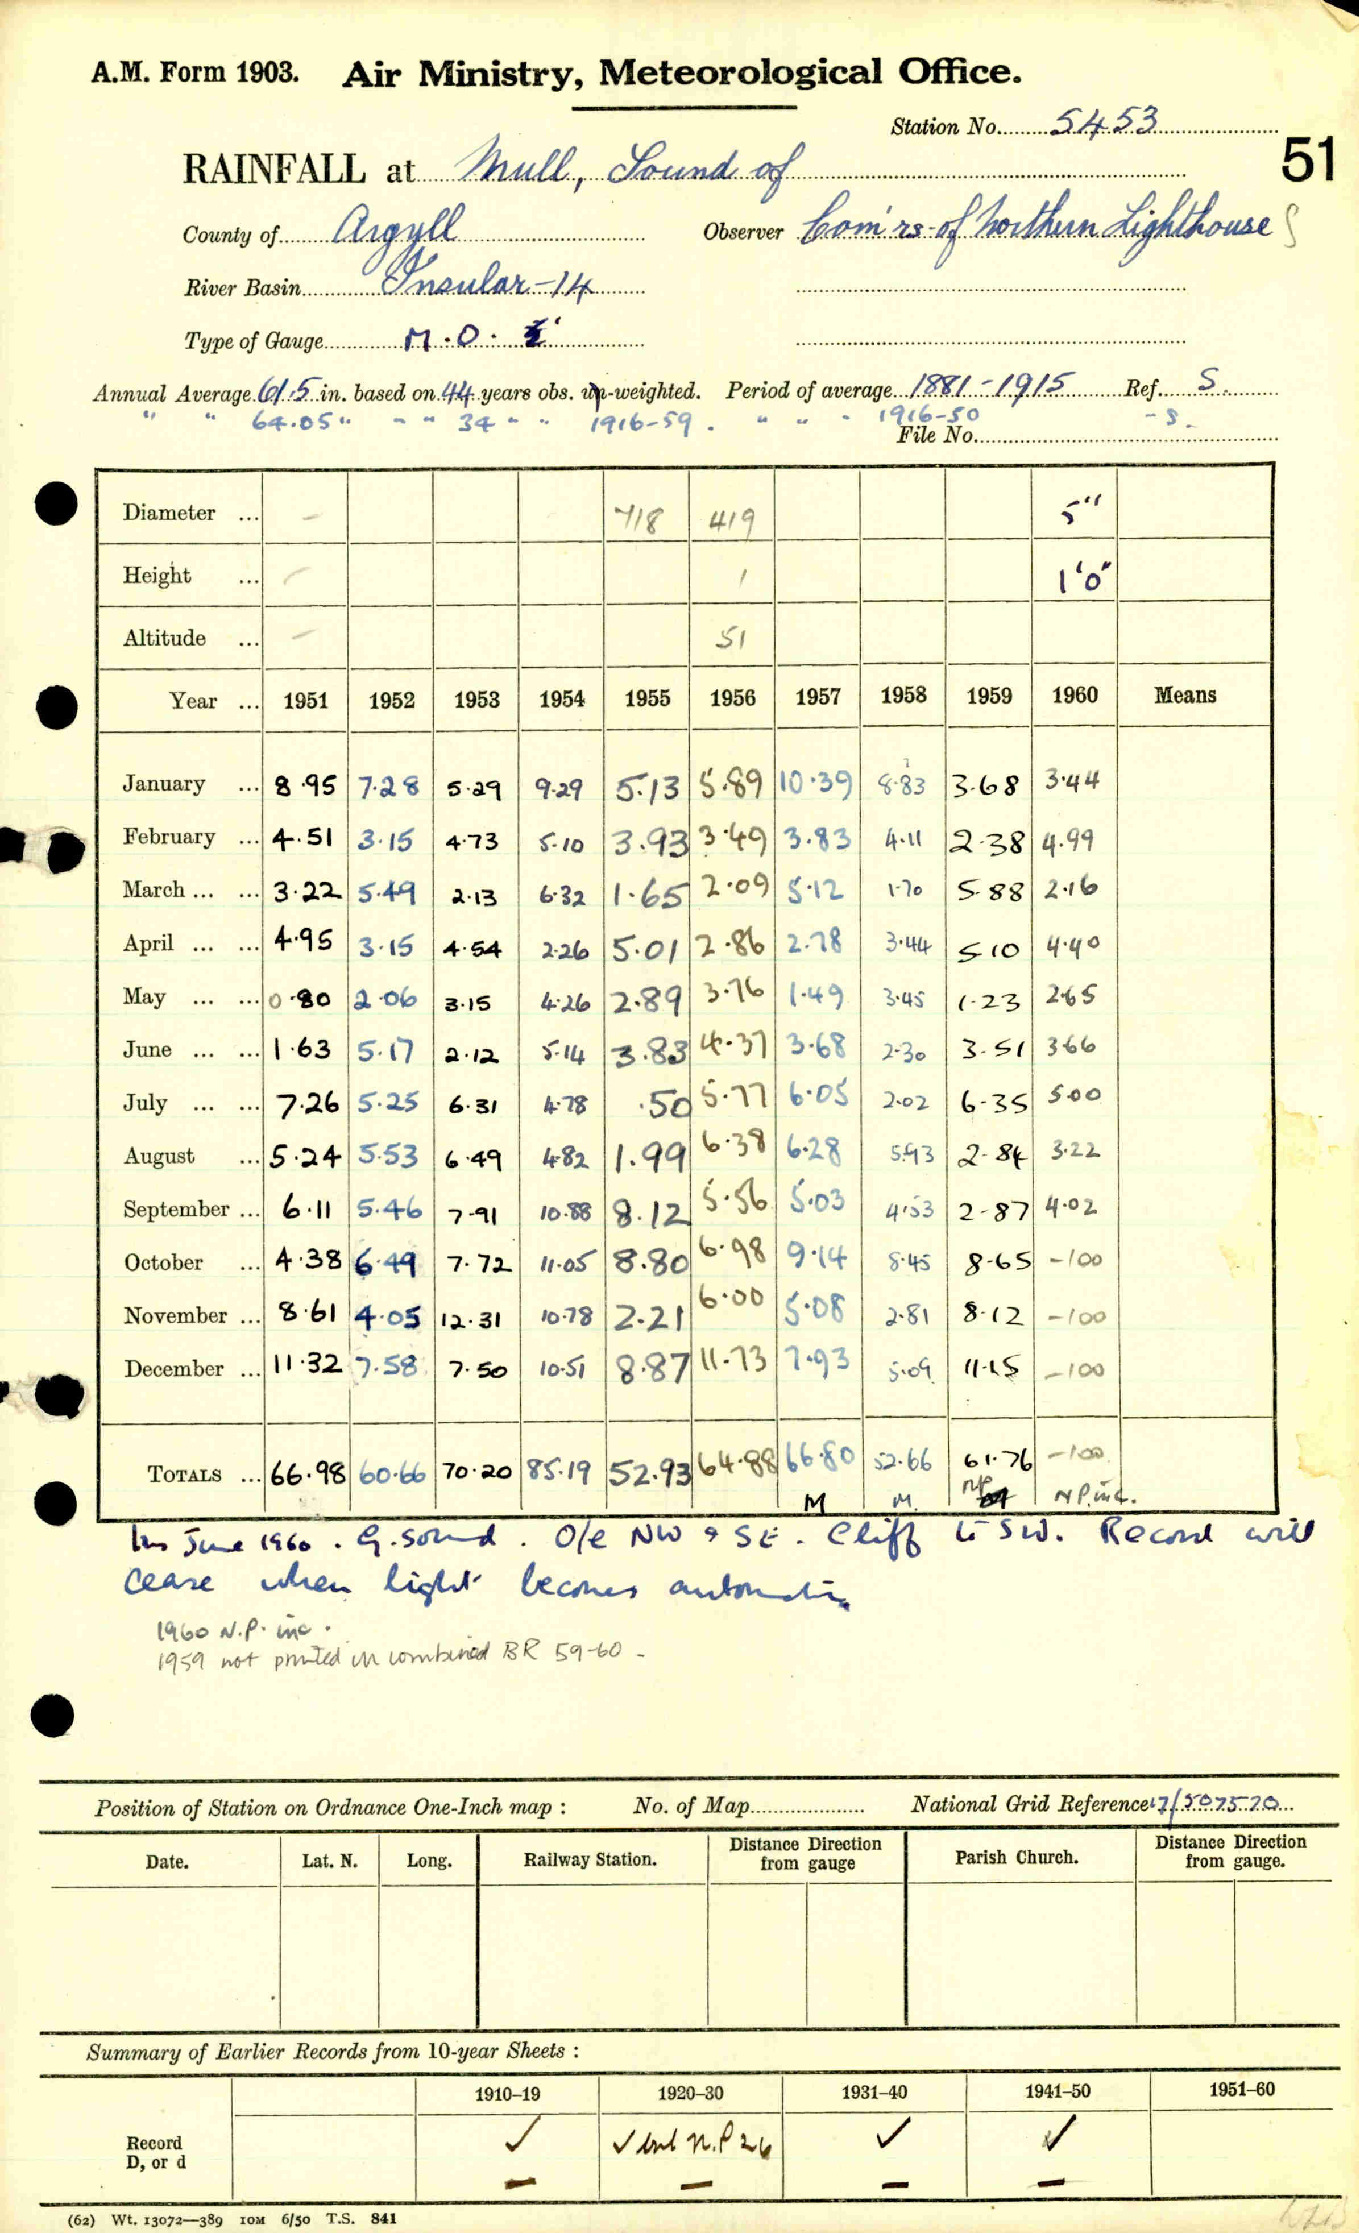 A.M. Form 1903. Air Ministry, Meteorological Office.
Station No. 5453
51
RAINFALL at Mull, Sound of
County of Argyll Observer Com'rs of Northern Lighthouses
River Basin Insular-14
Type of Gauge M.O.
Annual Average 61.5 in. based on 44 years obs. un-weighted. Period of average 1881-1915 Ref. S.
" " 64.05 " - " 34 " " 1916-59 . " " " 1916-50 - S.
File No.
Diameter ... - 718 419 5"
Height ... - 1 1'0"
Altitude ... - 51
Year ... 1951 1952 1953 1954 1955 1956 1957 1958 1959 1960 Means
January ... 8.95 7.28 5.29 9.29 5.13 5.89 10.39 8.83 3.68 3.44
February ... 4.51 3.15 4.73 5.10 3.93 3.49 3.83 4.11 2.38 4.99
March ... ... 3.22 5.49 2.13 6.32 1.65 2.09 5.12 1.70 5.88 2.16
April ... ... 4.95 3.15 4.54 2.26 5.01 2.86 2.78 3.44 5.10 4.40
May ... ... 0.80 2.06 3.15 4.26 2.89 3.76 1.49 3.45 1.23 2.65
June ... ... 1.63 5.17 2.12 5.14 3.83 4.37 3.68 2.30 3.51 3.66
July ... ... 7.26 5.25 6.31 4.78 .50 5.77 6.05 2.02 6.35 5.00
August ... 5.24 5.53 6.49 4.82 1.99 6.38 6.28 5.93 2.84 3.22
September ... 6.11 5.46 7.91 10.88 8.12 5.56 5.03 4.53 2.87 4.02
October ... 4.38 6.49 7.72 11.05 8.80 6.98 9.14 8.45 8.65 -100
November ... 8.61 4.05 12.31 10.78 2.21 6.00 5.08 2.81 8.12 -100
December ... 11.32 7.58 7.50 10.51 8.87 11.73 7.93 5.09 11.15 -100
TOTALS ... 66.98 60.66 70.20 85.19 52.93 64.88 66.80 52.66 61.76 -100
M M. NP N.P. inc.
Ins June 1960. G. sound. O/e NW & SE. Cliff to SW. Record will
cease when light becomes automatic
1960 N.P. inc.
1959 not printed in combined BR 59-60 -
Position of Station on Ordnance One-Inch map : No. of Map National Grid Reference 17/507570
Date. Lat. N. Long. Railway Station. Distance Direction from gauge Parish Church. Distance Direction from gauge.
Summary of Earlier Records from 10-year Sheets :
1910-19 1920-30 1931-40 1941-50 1951-60
Record ✓ ✓ but N.P 26 ✓ ✓
D, or d - - - -
(62) Wt. 13072—389 10M 6/50 T.S. 841